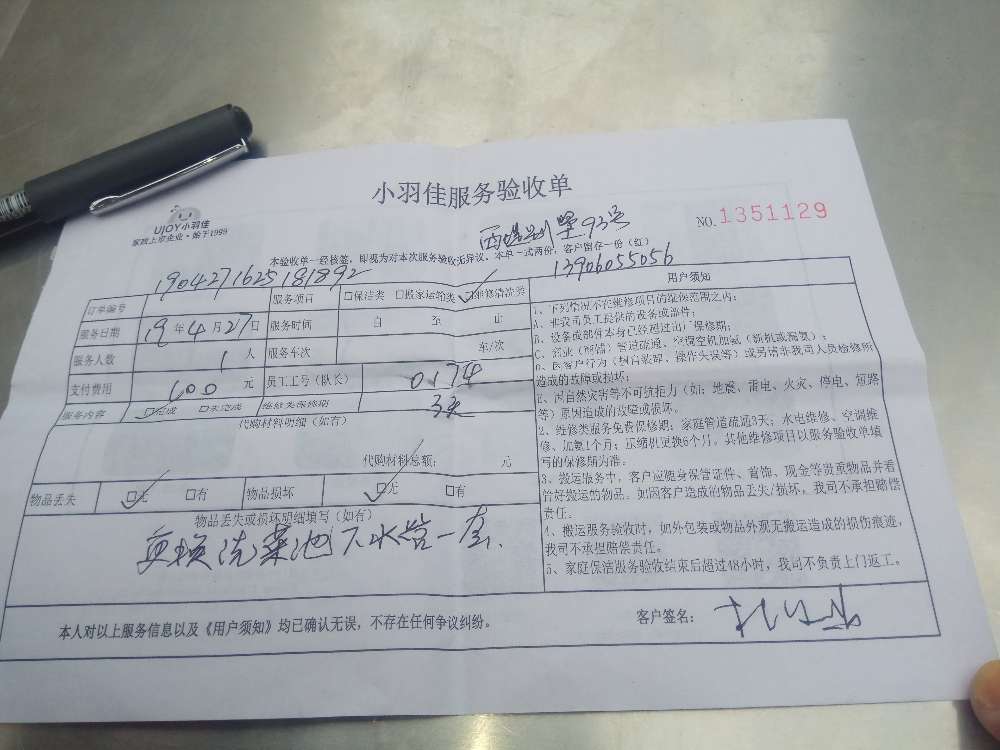 小羽佳服务验收单
UJOY小羽佳
家政上市企业·始于1999
NO.1351129
93号
本验收单一经核签，即视为对本次服务验收无异议，本单一式两份，客户留存一份（红）
13906055056
订单编号 1904271625181892
服务项目 □保洁类 □搬家运输类 ☑维修清洗类
服务日期 19年4月27日 服务时间 自 至 止
服务人数 1人 服务车次 车/次
支付费用 100元 员工工号（队长） 0174
服务内容 ☑完成 □未完成 维修类保修期 3天
代购材料明细（如有）
代购材料总额： 元
物品丢失 ☑无 □有 物品损坏 ☑无 □有
物品丢失或损坏明细填写（如有）
更换洗菜池下水管一套.
用户须知
1、下列情况不在维修项目的维修范围之内：
A、非我司员工提供的设备或部件；
B、设备或部件本身已经超过出厂保修期；
造成的故障或损坏；
E、因自然灾害等不可抗拒力（如：地震、雷电、火灾、停电、短路
等）原因造成的故障或损坏。
2、维修类服务免费保修期：家庭管道疏通3天；水电维修、空调维
修、加氨1个月；压缩机更换6个月。其他维修项目以服务验收单填
写的保修期为准。
3、搬运服务中，客户应随身保管证件、首饰、现金等贵重物品并看
管好搬运的物品。如因客户造成的物品丢失/损坏，我司不承担赔偿
责任。
4、搬运服务验收时，如外包装或物品外观无搬运造成的损伤痕迹，
我司不承担赔偿责任。
5、家庭保洁服务验收结束后超过48小时，我司不负责上门返工。
本人对以上服务信息以及《用户须知》均已确认无误，不存在任何争议纠纷。
客户签名：